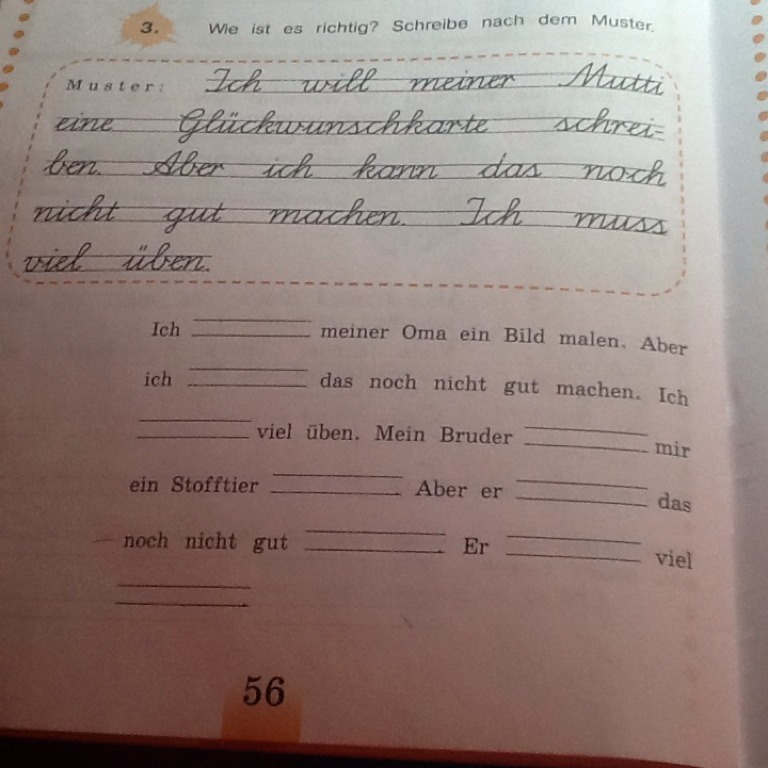 3. Wie ist es richtig? Schreibe nach dem Muster.
Muster: Ich will meiner Mutti
eine Glückwunschkarte schrei-
ben. Aber ich kann das noch
nicht gut machen. Ich muss
viel üben.
Ich meiner Oma ein Bild malen. Aber
ich das noch nicht gut machen. Ich
viel üben. Mein Bruder mir
ein Stofftier Aber er das
noch nicht gut Er viel
56